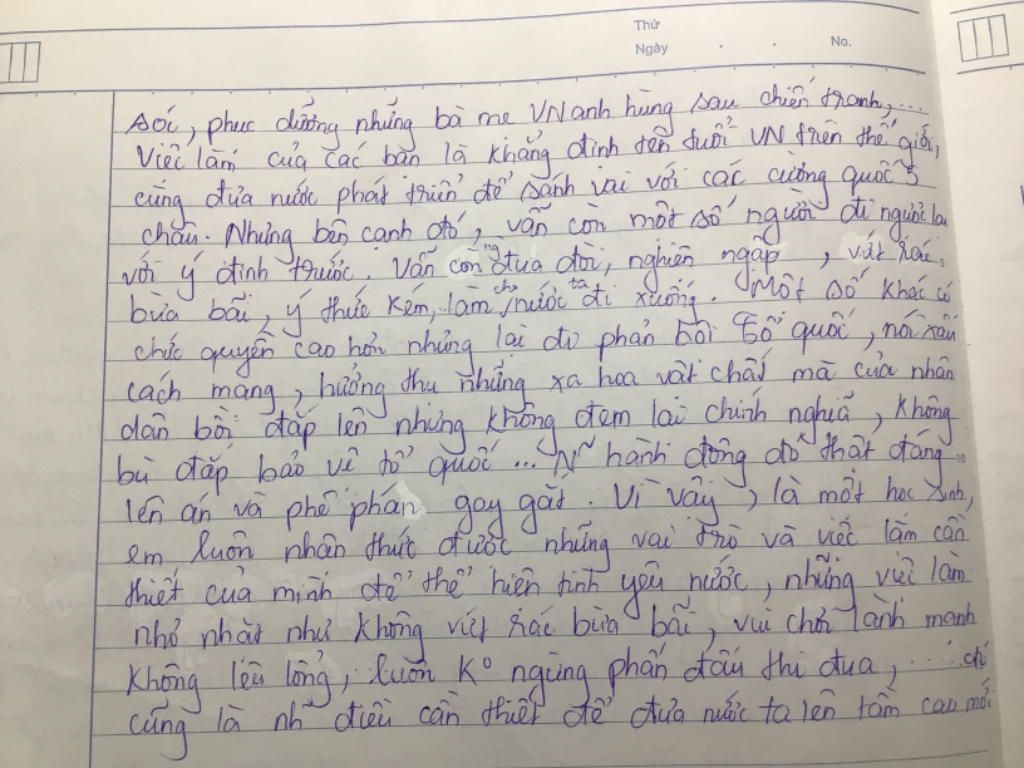 Thứ
Ngày . . No.
sóc, phục dưỡng những bà mẹ VN anh hùng sau chiến tranh,...
Việc làm của các bạn là khẳng định tên tuổi VN trên thế giới,
cũng đưa nước phát triển để sánh vai với các cường quốc 5
châu. Nhưng bên cạnh đó, vẫn còn một số người đi ngược lại
với ý định trước. Vẫn còn ng đua đòi, nghiện ngập, vứt rác
bừa bãi, ý thức kém, làm cho nước ta đi xuống. Một số khác có
chức quyền cao hơn nhưng lại đi phản bội Tổ quốc, nói xấu
cách mạng, hưởng thụ những xa hoa vật chất mà của nhân
dân bồi đắp lên nhưng không đem lại chính nghĩa, không
bù đắp bảo vệ tổ quốc... N~ hành động đó thật đáng
lên án và phê phán gay gắt. Vì vậy, là một học sinh,
em luôn nhận thức được những vai trò và việc làm cần
thiết của mình để thể hiện tình yêu nước, những việc làm
nhỏ nhặt như không vứt rác bừa bãi, vui chơi lành mạnh
không lêu lổng, luôn Kº ngừng phấn đấu thi đua, ..... đó
cũng là nh~ điều cần thiết để đưa nước ta lên tầm cao mới